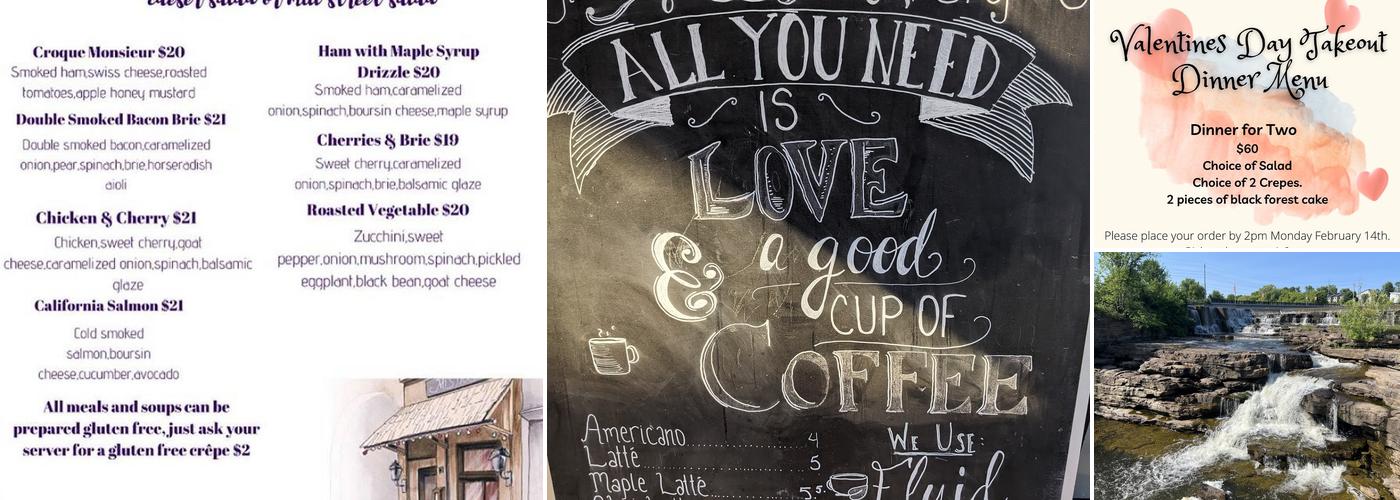 caeser salad or mill street salad
Croque Monsieur $20
Smoked ham,swiss cheese,roasted
tomatoes,apple honey mustard
Double Smoked Bacon Brie $21
Double smoked bacon,caramelized
onion,pear,spinach,brie,horseradish
aioli
Chicken & Cherry $21
Chicken,sweet cherry,goat
cheese,caramelized onion,spinach,balsamic
glaze
California Salmon $21
Cold smoked
salmon,boursin
cheese,cucumber,avocado
All meals and soups can be
prepared gluten free, just ask your
server for a gluten free crêpe $2
Ham with Maple Syrup
Drizzle $20
Smoked ham,caramelized
onion,spinach,boursin cheese,maple syrup
Cherries & Brie $19
Sweet cherry,caramelized
onion,spinach,brie,balsamic glaze
Roasted Vegetable $20
Zucchini,sweet
pepper,onion,mushroom,spinach,pickled
eggplant,black bean,goat cheese
ALL YOU NEED
IS
LOVE
& a good
CUP OF
COFFEE
Americano 4
Latté 5
Maple Latté 5.5
WE USE:
Fluid
Valentines Day Takeout
Dinner Menu
Dinner for Two
$60
Choice of Salad
Choice of 2 Crepes.
2 pieces of black forest cake
Please place your order by 2pm Monday February 14th.